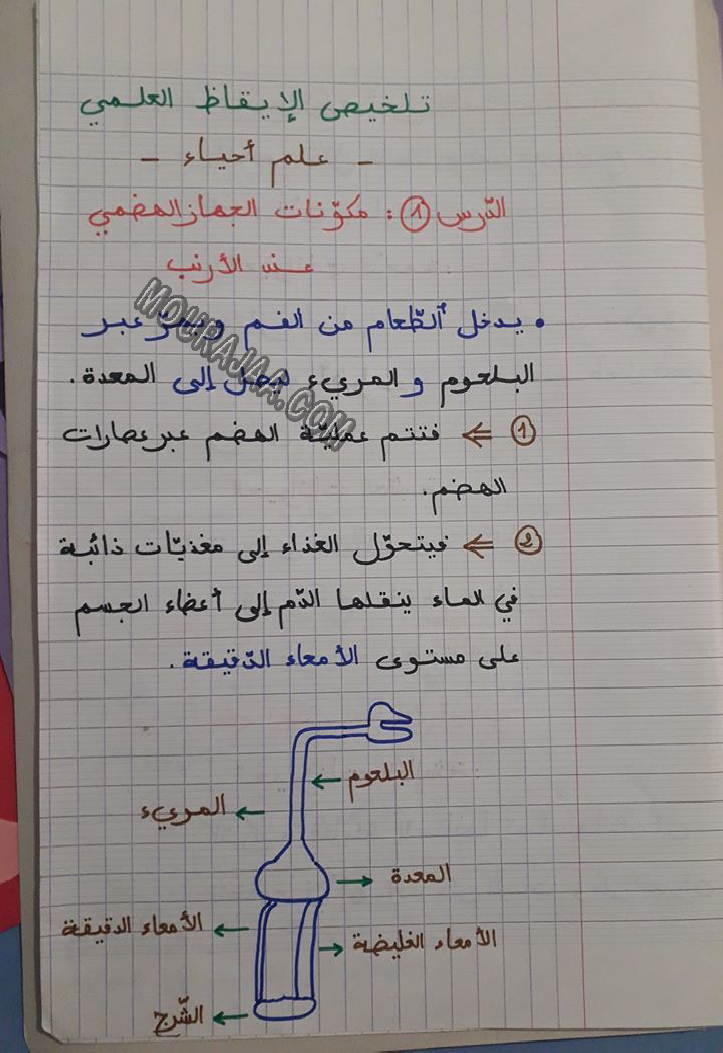 تلخيص الإيقاظ العلمي
- علم أحياء -
الدّرس ①: مكوّنات الجهاز الهضمي
عند الأرنب
• يدخل الطّعام من الفم ويمرّ عبر
البلعوم والمريء ليصل إلى المعدة.
① ⇐ فتتم عمليّة الهضم عبر عصارات
الهضم.
② ⇐ فيتحوّل الغذاء إلى مغذيّات ذائبة
في الماء ينقلها الدّم إلى أعضاء الجسم
على مستوى الأمعاء الدّقيقة.
البلعوم
المريء
المعدة
الأمعاء الدقيقة
الأمعاء الغليضة
الشّرج
MOURAJAA.COM